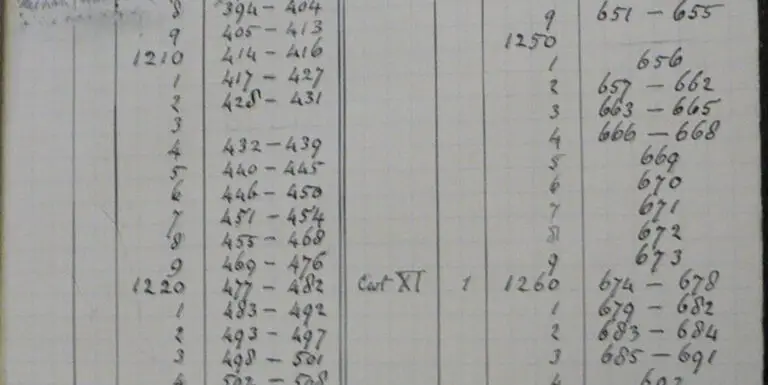 8 394 – 404
9 405 – 413
1210 414 – 416
1 417 – 427
2 428 – 431
3
4 432 – 439
5 440 – 445
6 446 – 450
7 451 – 454
8 455 – 468
9 469 – 476
1220 477 – 482
1 483 – 492
2 493 – 497
3 498 – 501
4 502 – 508
9 651 – 655
1250
1 656
2 657 – 662
3 663 – 665
4 666 – 668
5 669
6 670
7 671
8 672
9 673
Cart XI 1 1260 674 – 678
1 679 – 682
2 683 – 684
3 685 – 691
4 692